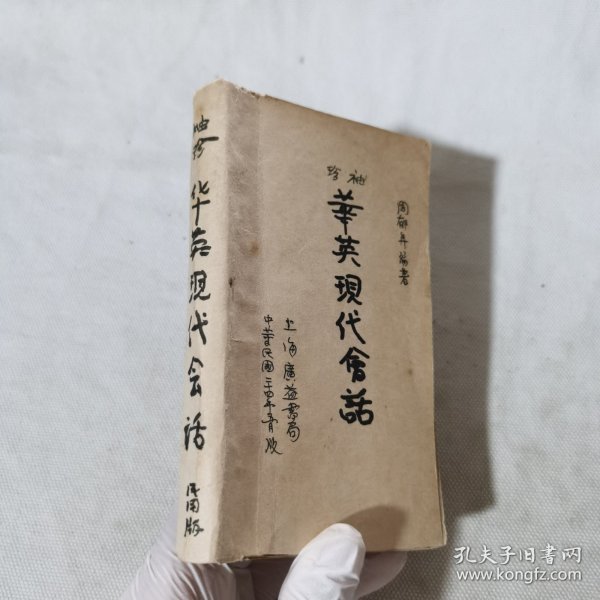 袖珍 华英现代会话 民国版
周郁年编著
袖珍
華英現代會話
上海廣益書局
中華民國三十四年五月版
孔夫子旧书网
www.kongfz.com